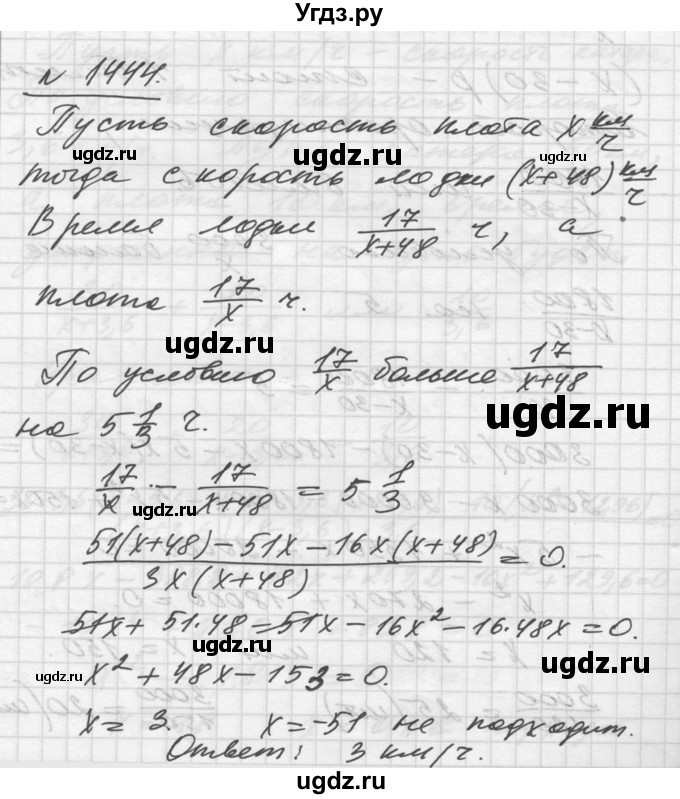 Угдз.ру
N 1444.
Пусть скорость плота x км/ч
тогда скорость лодки (x+48) км/ч.
Время лодки 17/(x+48) ч, а
плота 17/x ч.
По условию 17/x больше 17/(x+48)
на 5 1/3 ч.
17/x - 17/(x+48) = 5 1/3
(51(x+48) - 51x - 16x(x+48))/(3x(x+48)) = 0.
51x + 51·48 = 51x - 16x² - 16·48x = 0.
x² + 48x - 153 = 0.
x = 3. x = -51 не подходит.
Ответ: 3 км/ч.
ugdz.ru
ugdz.ru
ugdz.ru
ugdz.ru
ugdz.ru
ugdz.ru
ugdz.ru
ugdz.ru
ugdz.ru
ugdz.ru
ugdz.ru
ugdz.ru
ugdz.ru